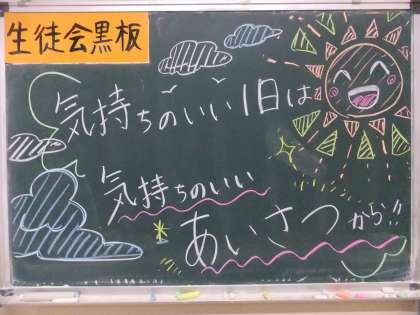 生徒会黒板
気持ちのいい1日は
気持ちのいい
あいさつから!!